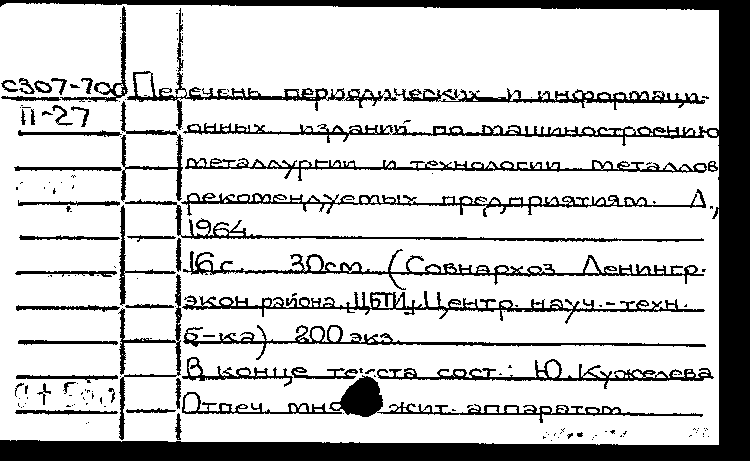 С307-700 Перечень периодических и информаци-
П-27 онных изданий по машиностроению
металлургии и технологии металлов
рекомендуемых предприятиям. Л.,
1964.
16 с. 30см. (Совнархоз Ленингр.
экон. района. ЦБТИ. Центр. науч.-техн.
б-ка). 200 экз.
В конце текста сост.: Ю. Кужелева
Отпеч. мно жит. аппаратом